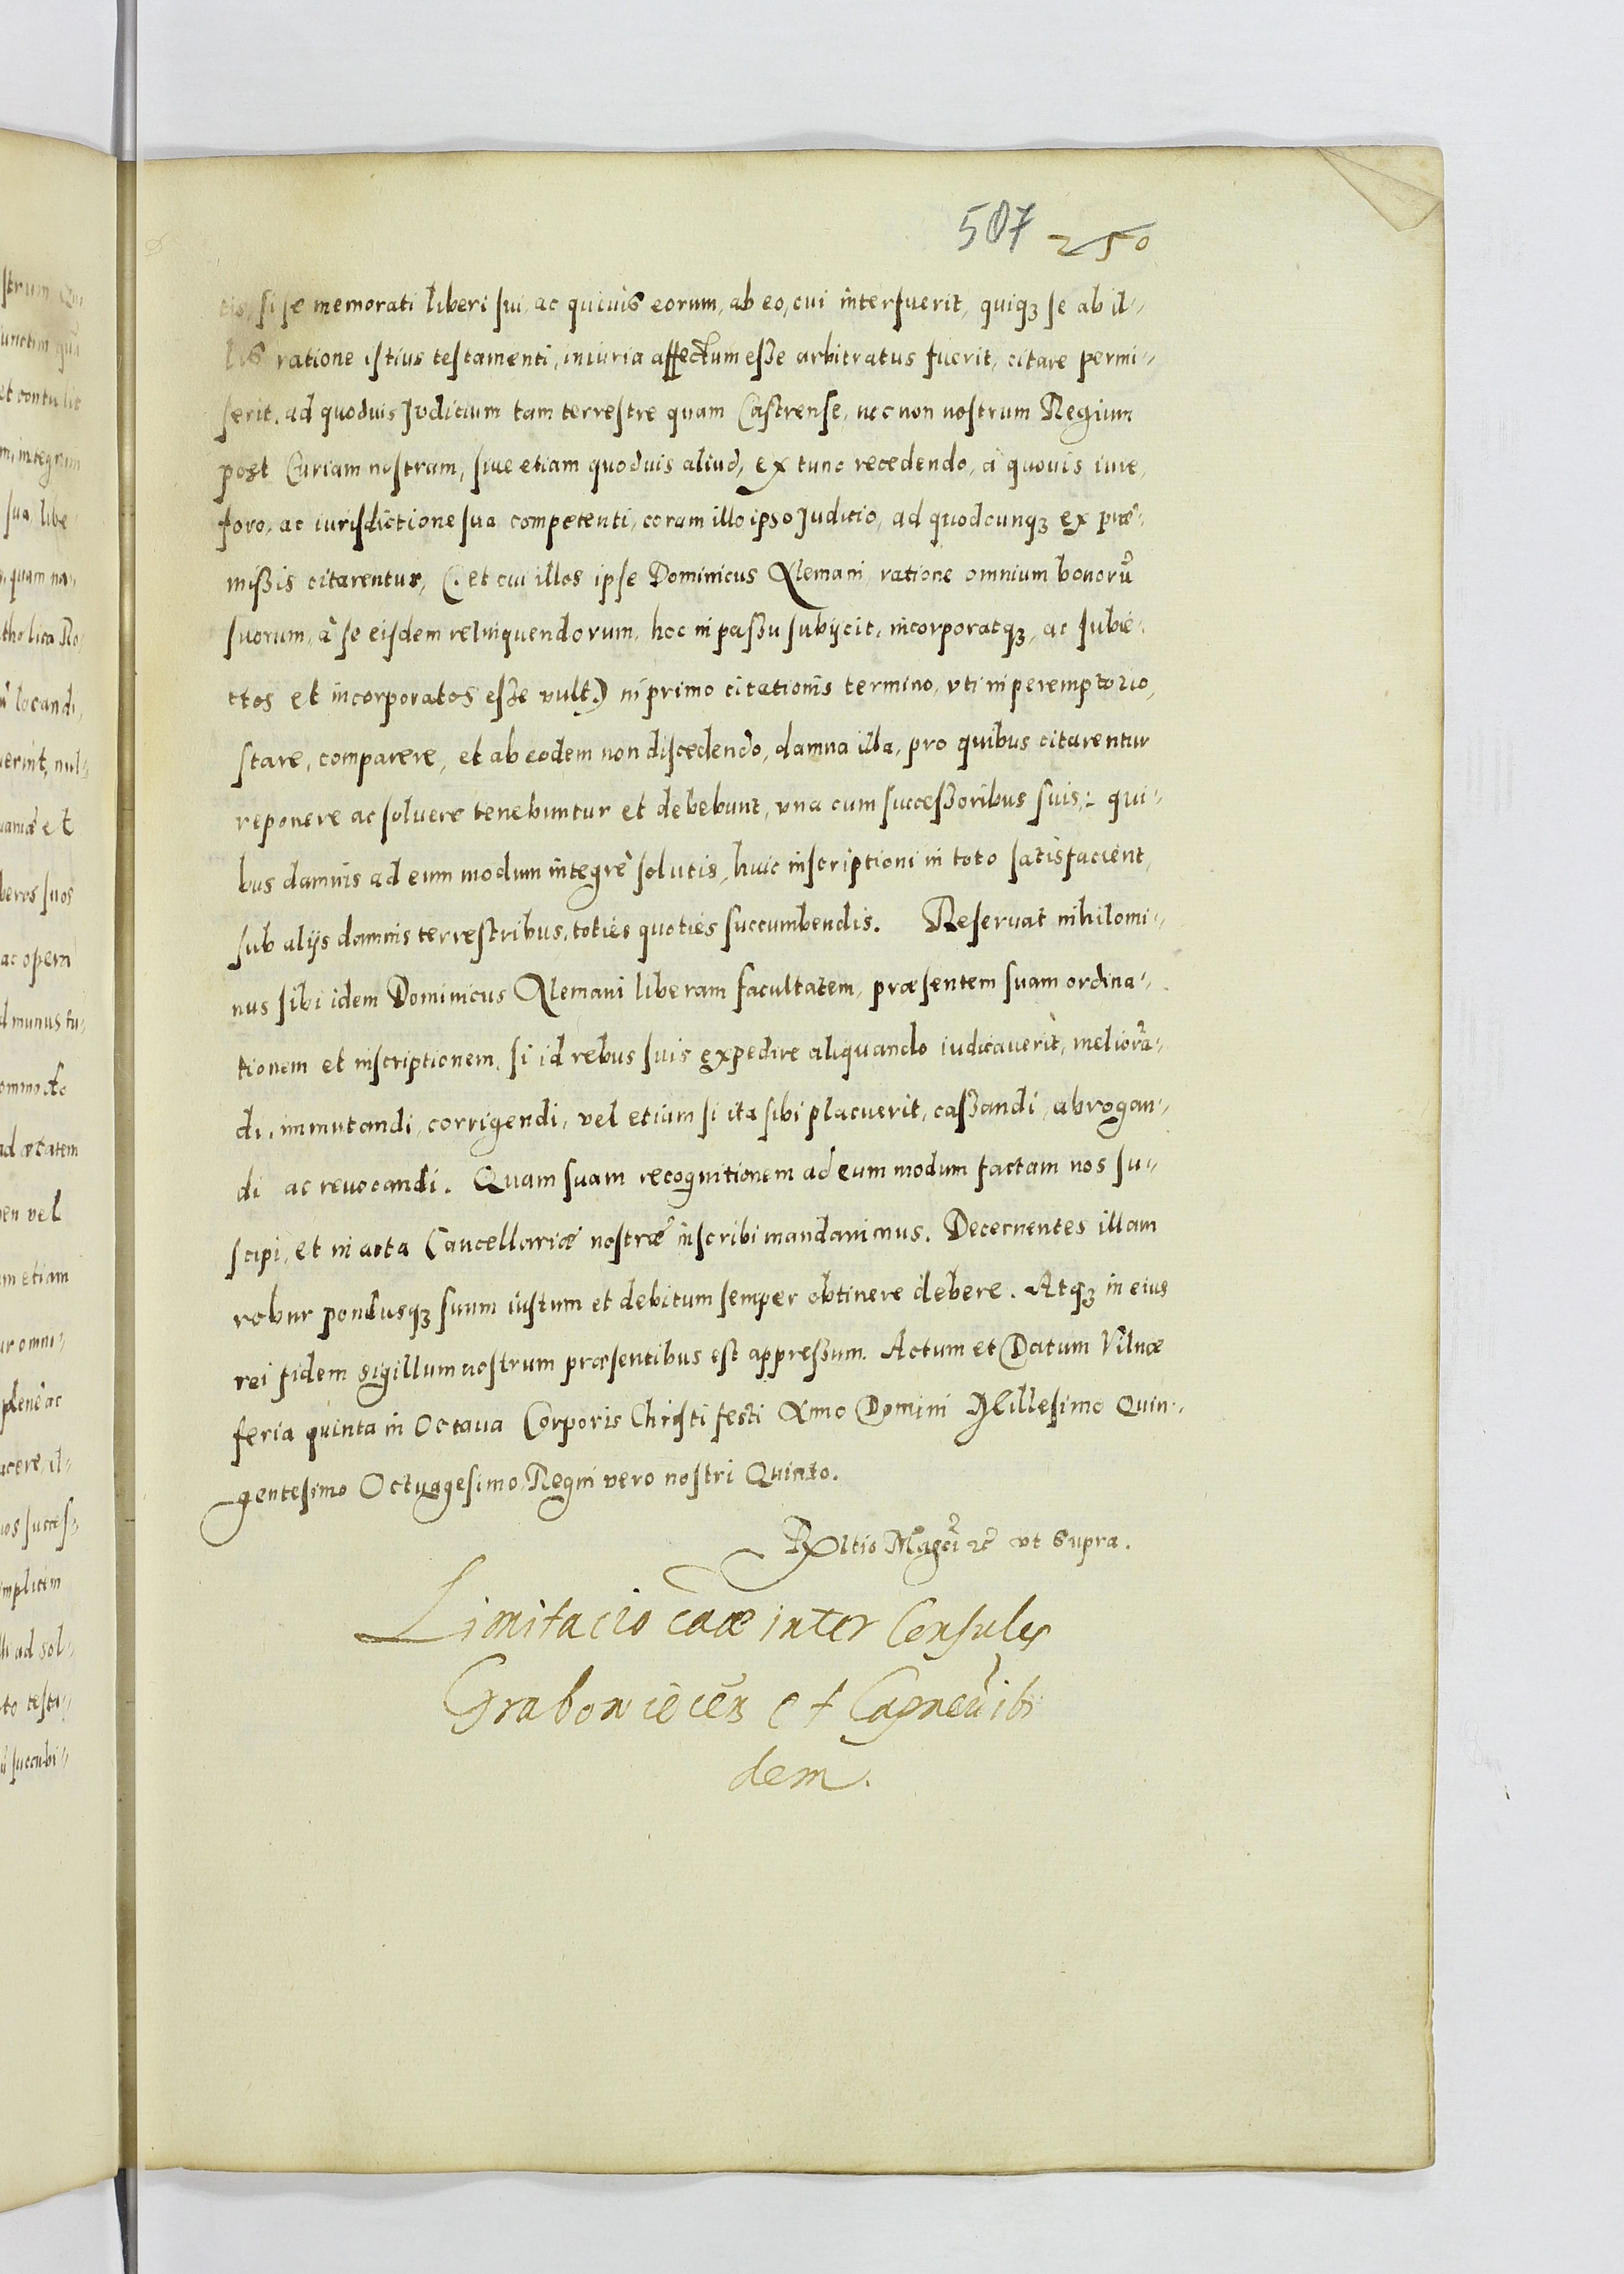 507 250
tis, si se memorati liberi sui, ac quiuis eorum, ab eo, cui interfuerit, quiqȝ se ab il-
lis ratione istius testamenti, iniuria affectum esse arbitratus fuerit, citare permi-
serit, ad quoduis Juditium tam terrestre quam Castrense, nec non nostrum Regium
post Curiam nostram, siue etiam quoduis aliud, ex tunc recedendo, à quouis iure,
foro, ac iurisdictione sua competenti, coram illo ipso Juditio, ad quodcunqȝ ex præ-
missis citarentur, (: et cui illos ipse Dominicus Alemani ratione omnium bonorũ
suorum, à se eisdem relinquendorum, hoc in passu subijcit, incorporatqȝ, ac subie-
ctos et incorporatos esse vult.) in primo citationis termino, vti in peremptorio,
stare, comparere, et ab eodem non discedendo, damna illa, pro quibus citarentur
reponere ac soluere tenebuntur et debebunt, vna cum successoribus suis: qui-
bus damnis ad eum modum integrè solutis, huic inscriptioni in toto satisfacient,
sub alijs damnis terrestribus, toties quoties succumbendis. Reseruat nihilomi-
nus sibi idem Dominicus Alemani liberam facultatem, præsentem suam ordina-
tionem et inscriptionem, si id rebus suis expedire aliquando iudicauerit, meliorã-
di, immutandi, corrigendi, vel etiam si ita sibi placuerit, cassandi, abrogan-
di ac reuocandi. Quam suam recognitionem ad eum modum factam nos su-
scipi, et in acta Cancellariæ nostræ inscribi mandauimus. Decernentes illam
robur pondusqȝ suum iustum et debitum semper obtinere debere. Atqȝ in eius
rei fidem sigillum nostrum præsentibus est appressum. Actum et Datum Vilnæ
feria quinta in Octaua Corporis Christi festi Anno Domini Millesimo Quin-
gentesimo Octuagesimo, Regni vero nostri Quinto.
Rltio Mağci ꝛc̃ vt supra.
Limitacio caæ inter Consules
et
dem.